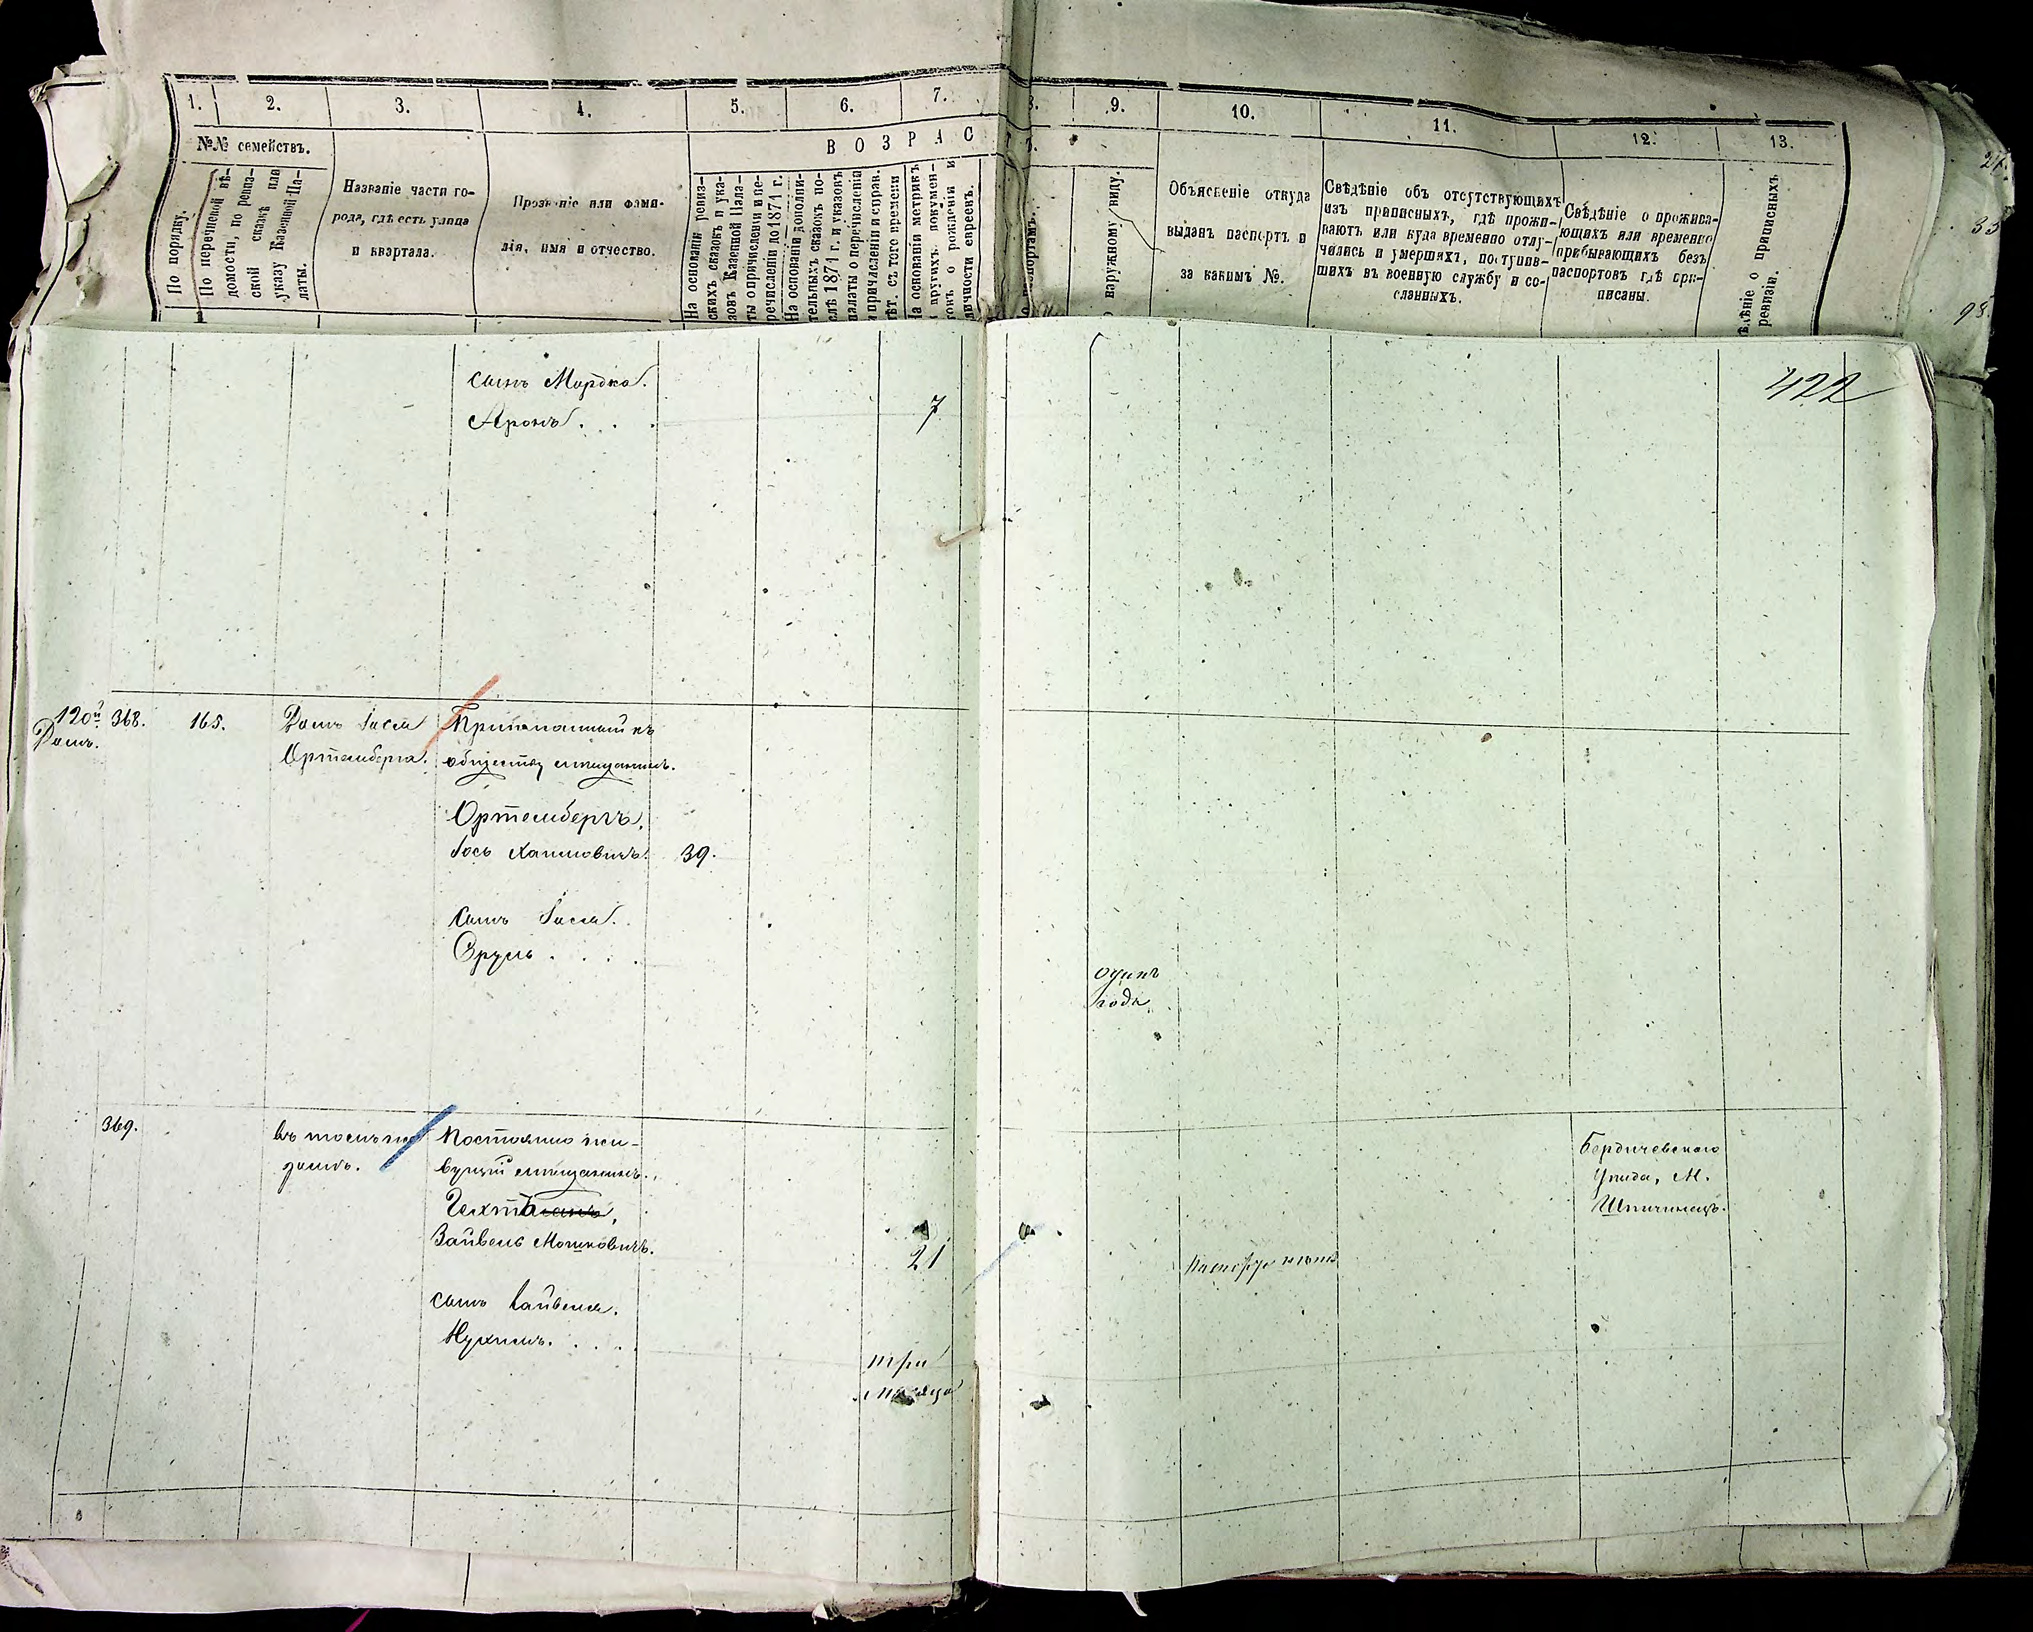 1. 2. 3. 4. 5. 6. 7. 8. 9. 10. 11. 12. 13.
№№ семействъ.
ВОЗРАС
По порядку.
По перечневой вѣ-
домости, по ревиз-
ской сказкѣ или
указу Казенной Па-
латы.
Названіе части го-
рода, гдѣ есть улица
и квартала.
Прозваніе или фами-
лія, имя и отчество.
На основаніи ревиз-
скихъ сказокъ и ука-
зовъ Казенной Пала-
ты о причисленіи и пе-
речисленіи до 1871 г.
На основаніи дополни-
тельныхъ сказокъ по-
слѣ 1871 г. и указовъ
палаты о перечисленіи
и причисленіи и справ.
лѣт. съ того времени
На основаніи метрикъ
и другихъ докумен-
товъ о рожденіи и
личности евреевъ.
наружному виду.
Объясненіе откуда
выданъ паспортъ и
за какимъ №.
Свѣдѣніе объ отсутствующихъ
изъ приписныхъ, гдѣ прожи-
ваютъ или куда временно отлу-
чились и умершихъ, поступив-
шихъ въ военную службу и со-
сланныхъ.
Свѣдѣніе о прожива-
ющихъ или временно
прибывающихъ безъ
паспортовъ гдѣ при-
писаны.
дѣніе о приписныхъ
ревизіи.
422
сынъ Мордка.
Аронъ . . . 7
120й 368. 165. Домъ Іося Приписанный къ
Домъ. Ортенберга. обществу мѣщанинъ.
Ортенбергъ,
Іось Хаимовичъ. 39.
сынъ Іося.
Сруль . . . .
одинъ
годъ
369. въ томъ же Постоянно жи-
домѣ. вущій мѣщанинъ.
Зайвель Мошковичъ. 21
Бердичевскаго
уѣзда, М.
Шпичинецъ.
сынъ Зайвеля.
Нухимъ. . . . .
три
мѣсяца